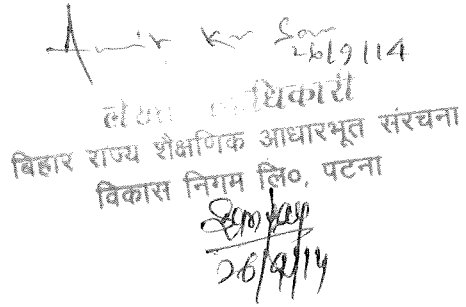 Amit Kr
26/9/14
अधिकारी
बिहार राज्य शैक्षणिक आधारभूत संरचना
विकास निगम लि०, पटना
26/9/14